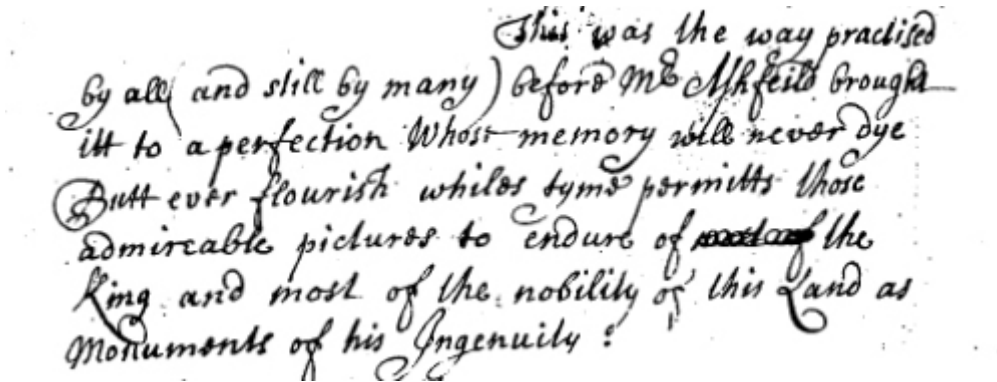 This was the way practised
by all ( and still by many ) before Mr Ashfeild brought
itt to a perfection Whose memory will never dye
Butt ever flourish whiles tyme permitts those
admireable pictures to endure of the
King and most of the nobility of this Land as
Monuments of his Ingenuity :